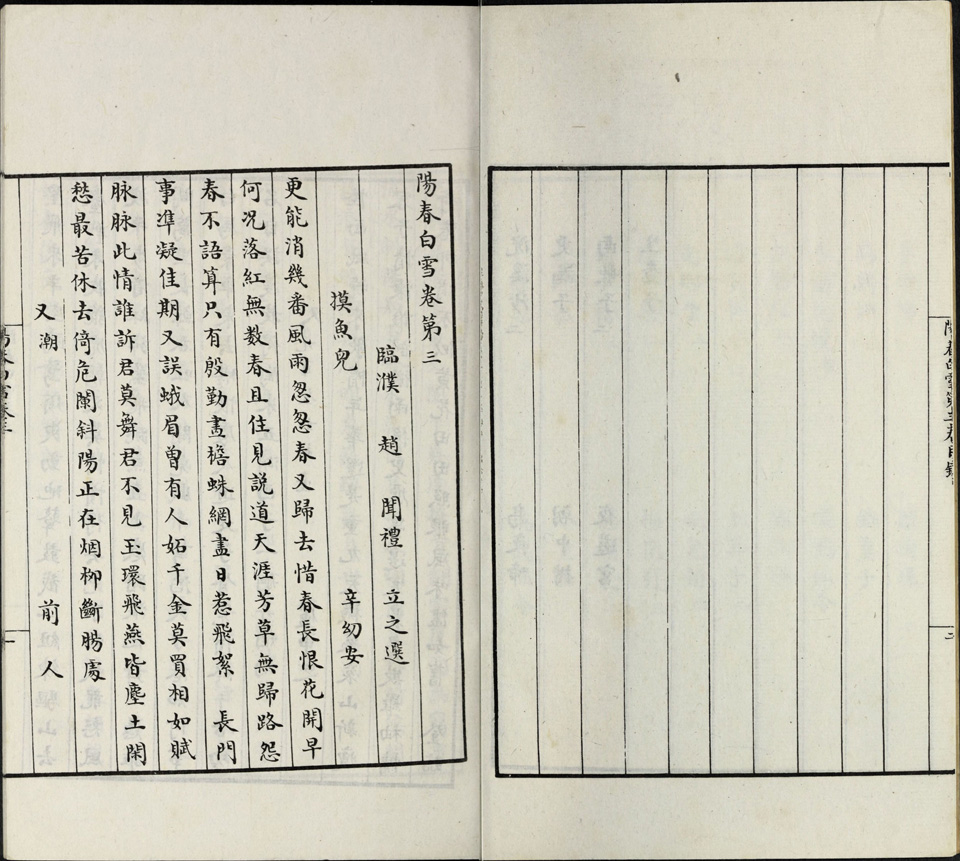 陽春白雪卷第三
臨濮 趙 聞禮 立之選
摸魚兒 辛幼安
更能消幾番風雨怱怱春又歸去惜春長恨花開早
何況落紅無数春且住見説道天涯芳草無歸路怨
春不語算只有殷勤畫檐蛛網盡日惹飛絮 長門
事準凝佳期又誤蛾眉曾有人妬千金莫買相如賦
脉脉此情誰訴君莫舞君不見玉環飛燕皆塵土閑
愁最苦休去倚危闌斜陽正在烟柳斷腸處
又潮 前人